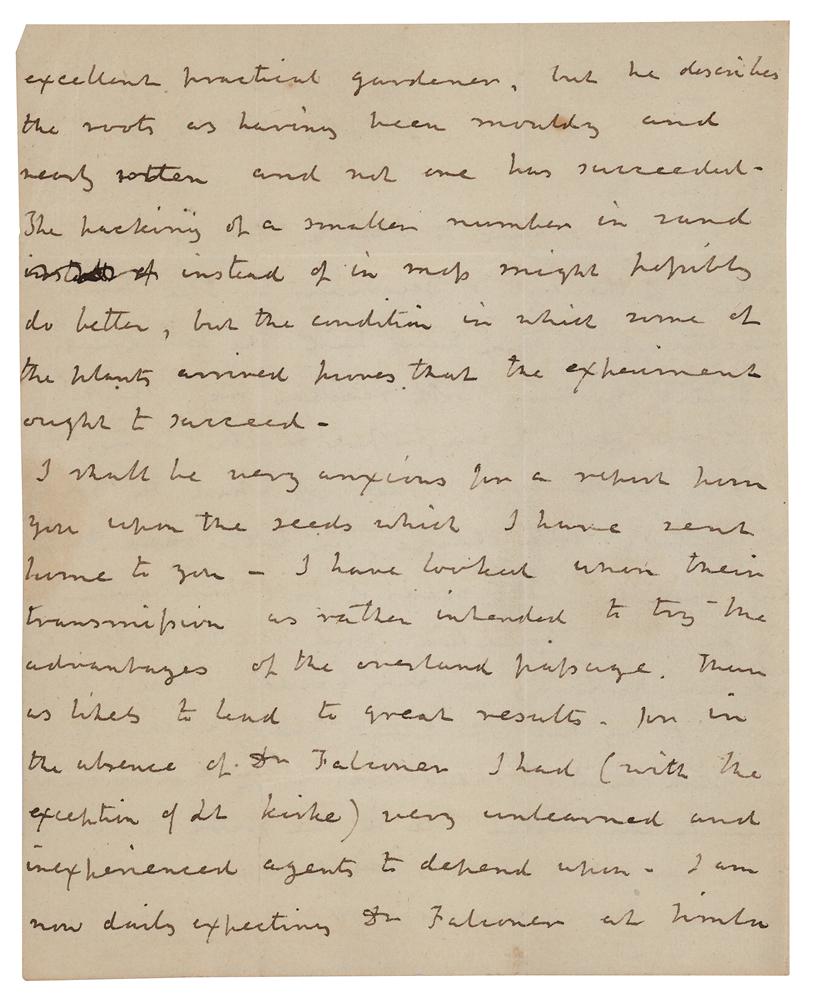 excellent practical gardener, but he describes
the roots as having been mouldy and
nearly rotten and not one has succeeded -
The packing of a smaller number in sand
of instead of in moss might possibly
do better, but the condition in which some of
the plants arrived proves that the experiment
ought to succeed -
I shall be very anxious for a report from
you upon the seeds which I have sent
home to you - I have looked upon their
transmission as rather intended to try the
advantages of the overland passage. than
as likely to lead to great results. for in
the absence of Dr Falconer I had (with the
exception of Lt Kirke) very unlearned and
inexperienced agents to depend upon - I am
now daily expecting Dr Falconer at Simla